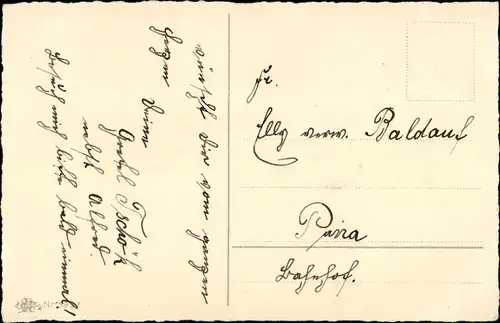 wünscht dir vom ganzen
Herzen
Deine
Gretel Tzschök
nebst Alfred.
Besuch mich bitte bald einmal!
Fr.
Elly verw. Baldauf
Pirna
Bahnhof.